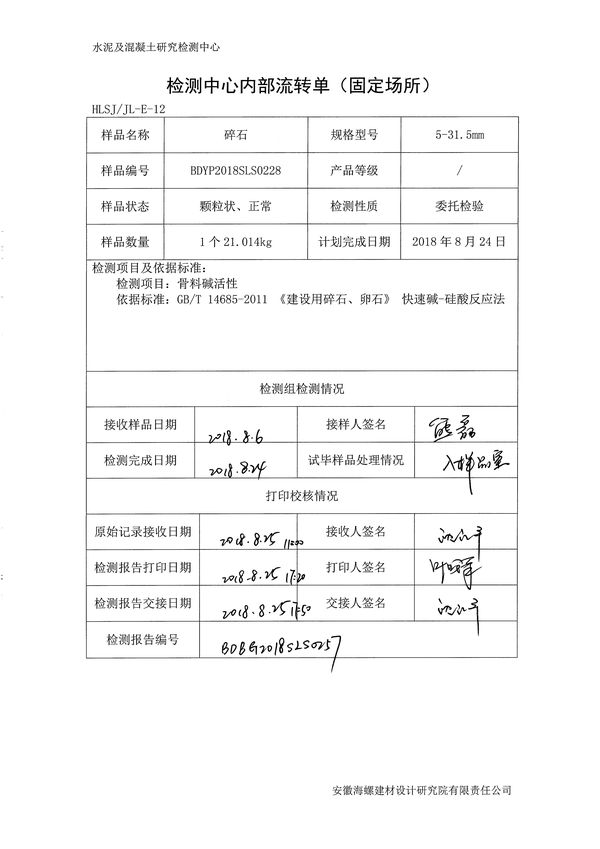 水泥及混凝土研究检测中心
检测中心内部流转单（固定场所）
HLSJ/JL-E-12
样品名称 碎石 规格型号 5-31.5mm
样品编号 BDYP2018SLS0228 产品等级 /
样品状态 颗粒状、正常 检测性质 委托检验
样品数量 1个21.014kg 计划完成日期 2018年8月24日
检测项目及依据标准：
检测项目：骨料碱活性
依据标准：GB/T 14685-2011 《建设用碎石、卵石》 快速碱-硅酸反应法
检测组检测情况
接收样品日期 2018.8.6 接样人签名 熊磊
检测完成日期 2018.8.24 试毕样品处理情况 入样品室
打印校核情况
原始记录接收日期 2018.8.25 11:00 接收人签名
检测报告打印日期 2018.8.25 17:20 打印人签名
检测报告交接日期 2018.8.25 17:50 交接人签名
检测报告编号 BDBG2018SLS0257
安徽海螺建材设计研究院有限责任公司